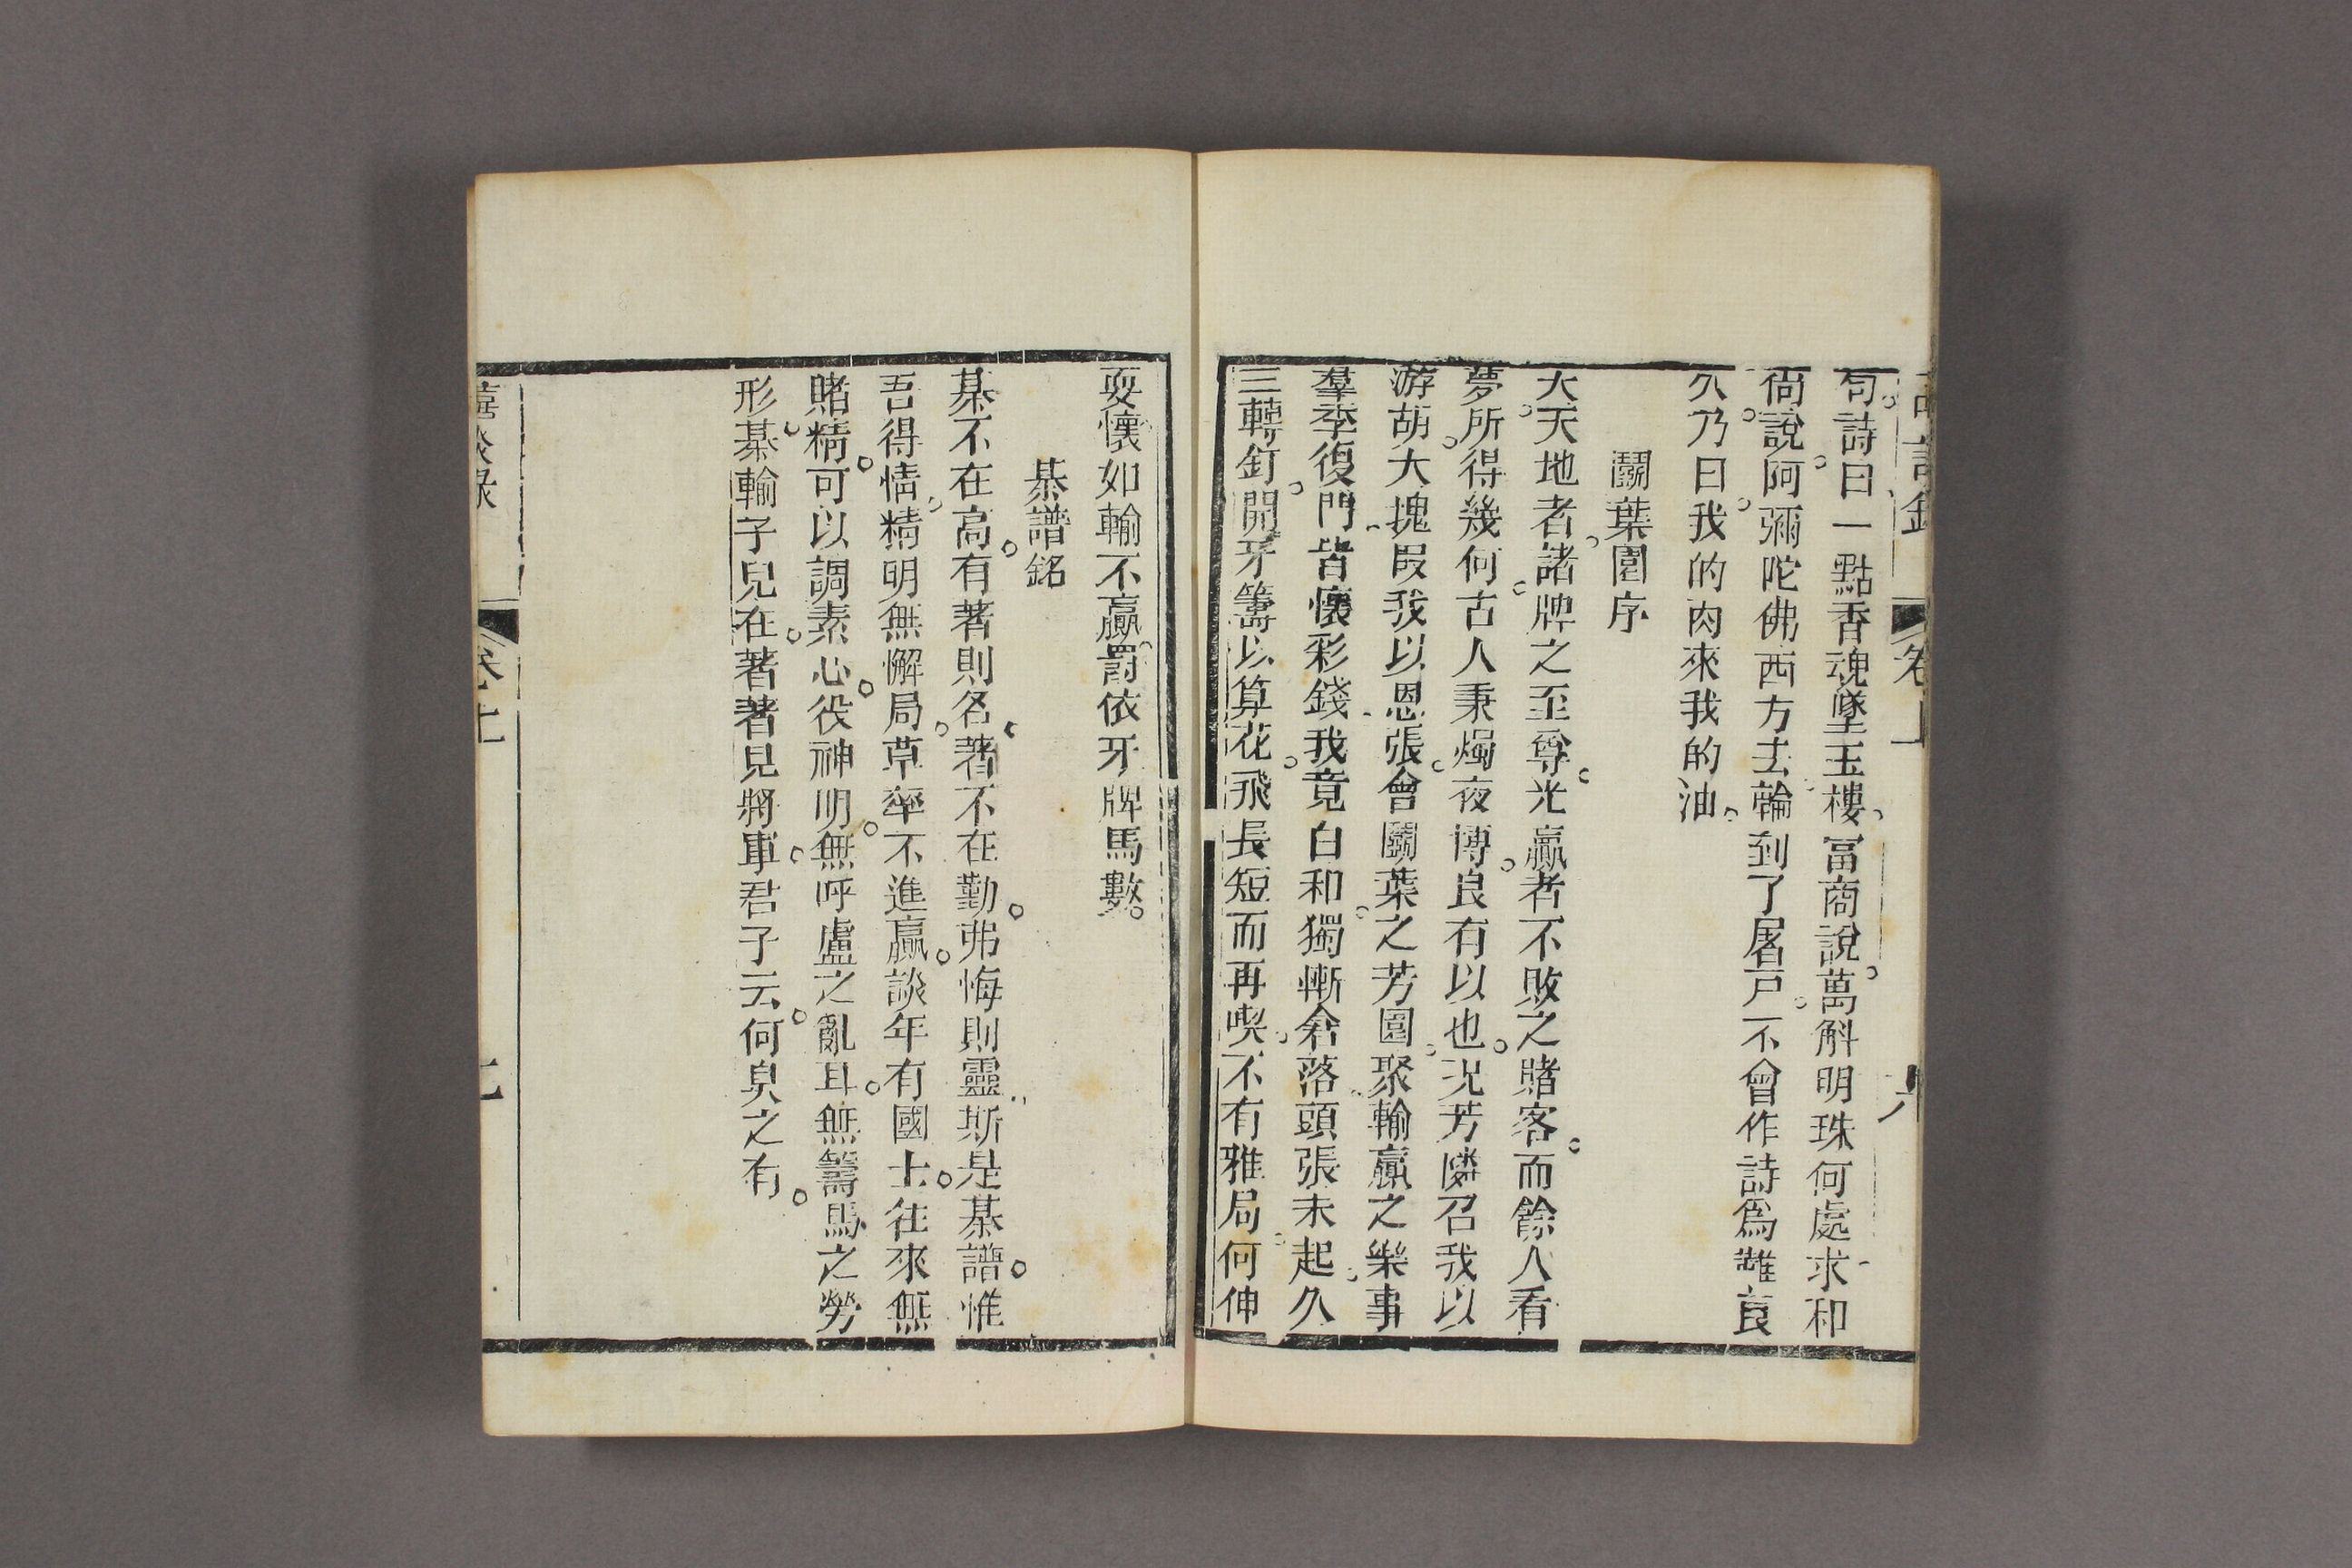 句詩曰一點香魂墜玉樓冨商說萬斛明珠何處求和
尙說阿彌陀佛西方去輪到了屠戸不會作詩爲難良
久乃曰我的肉來我的油
鬬葉圍序
夫天地者諸牌之至尊光贏者不敗之賭客而餘人看
夢所得幾何古人秉燭夜博良有以也况芳隣召我以
游胡大塊叚我以恩張會鬬葉之芳圍聚輸贏之樂事
羣季復門皆懷彩錢我竟白和獨慚倉落頭張未起久
三轉釘開牙籌以算花飛長短而再喫不有雅局何伸
耍懷如輸不贏罰依牙牌馬數
棊譜銘
棊不在高有著則名著不在勤弗悔則靈斯是棊譜惟
吾得情精明無懈局草率不進贏談年有國士往來無
賭精可以調素心役神明無呼盧之亂耳無籌馬之勞
形棊輸子兒在著著見將軍君子云何臭之有
卷上
七